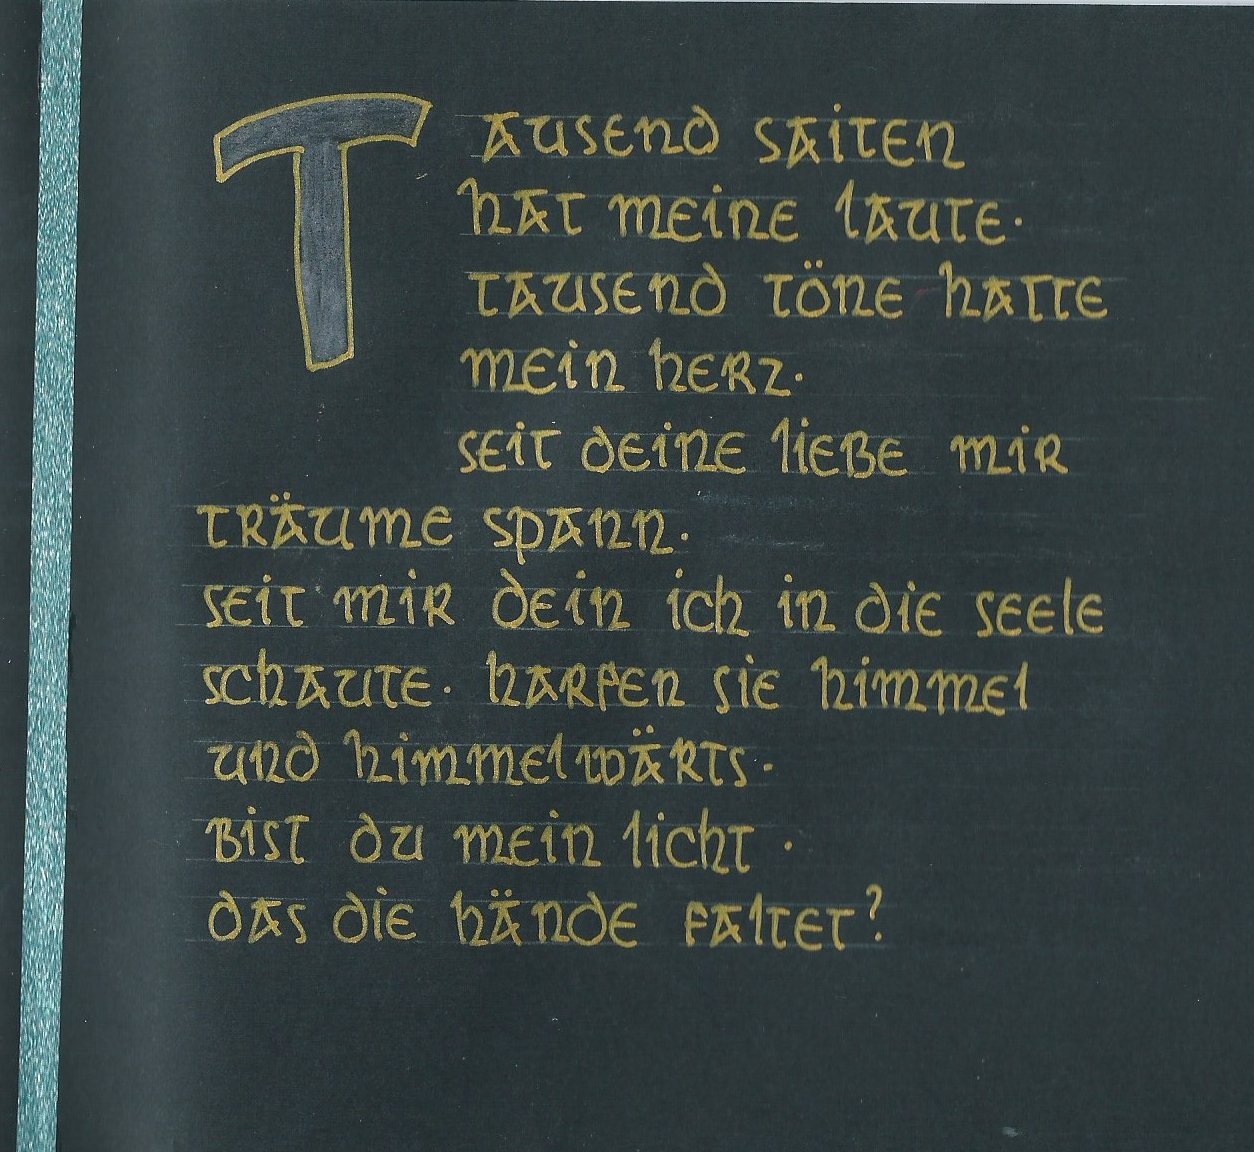 Tausend saiten
hat meine laute.
tausend töne hatte
mein herz.
seit deine liebe mir
träume spann.
seit mir dein ich in die seele
schaute. harfen sie himmel
und himmelwärts.
bist du mein licht.
das die hände faltet?